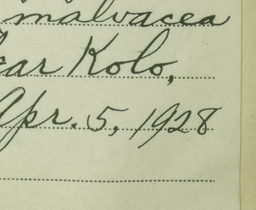 malvacea
ear Kolo,
Apr. 5, 1928